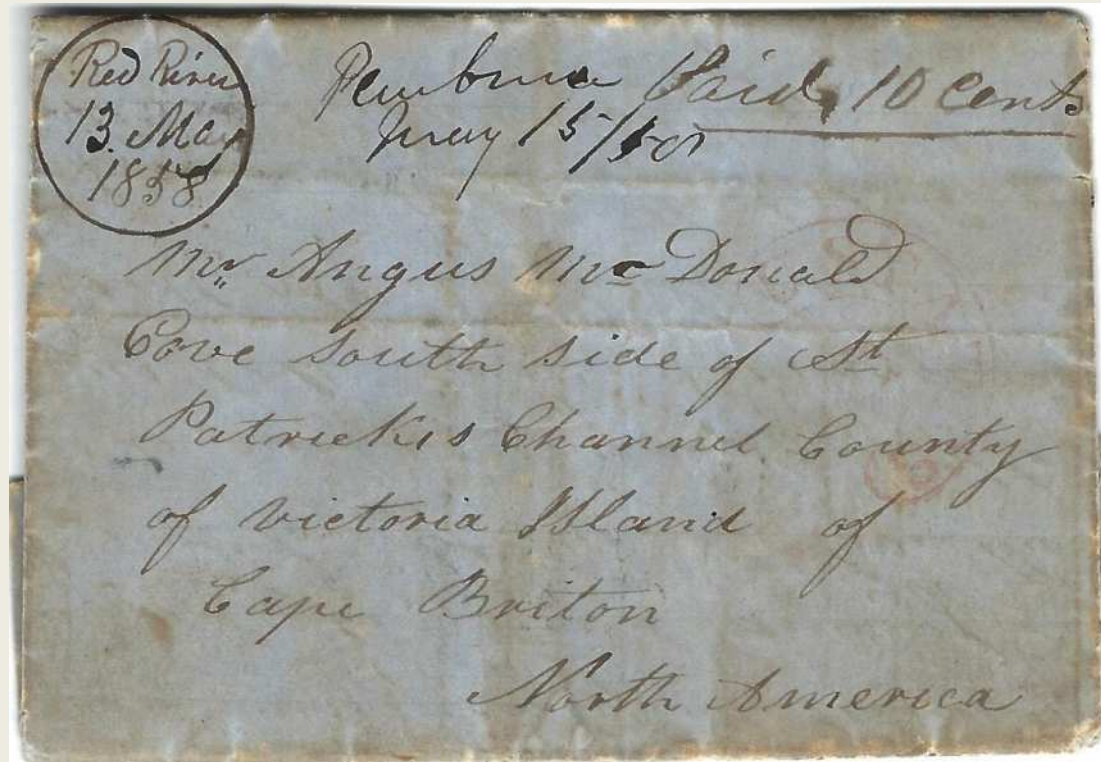 Red River
13. May
1858
Pembina Paid, 10 Cents
May 15/58
Mr. Angus Mc Donald
Cove South Side of St
Patrickis Channel County
of Victoria Island of
Cape Briton
North America